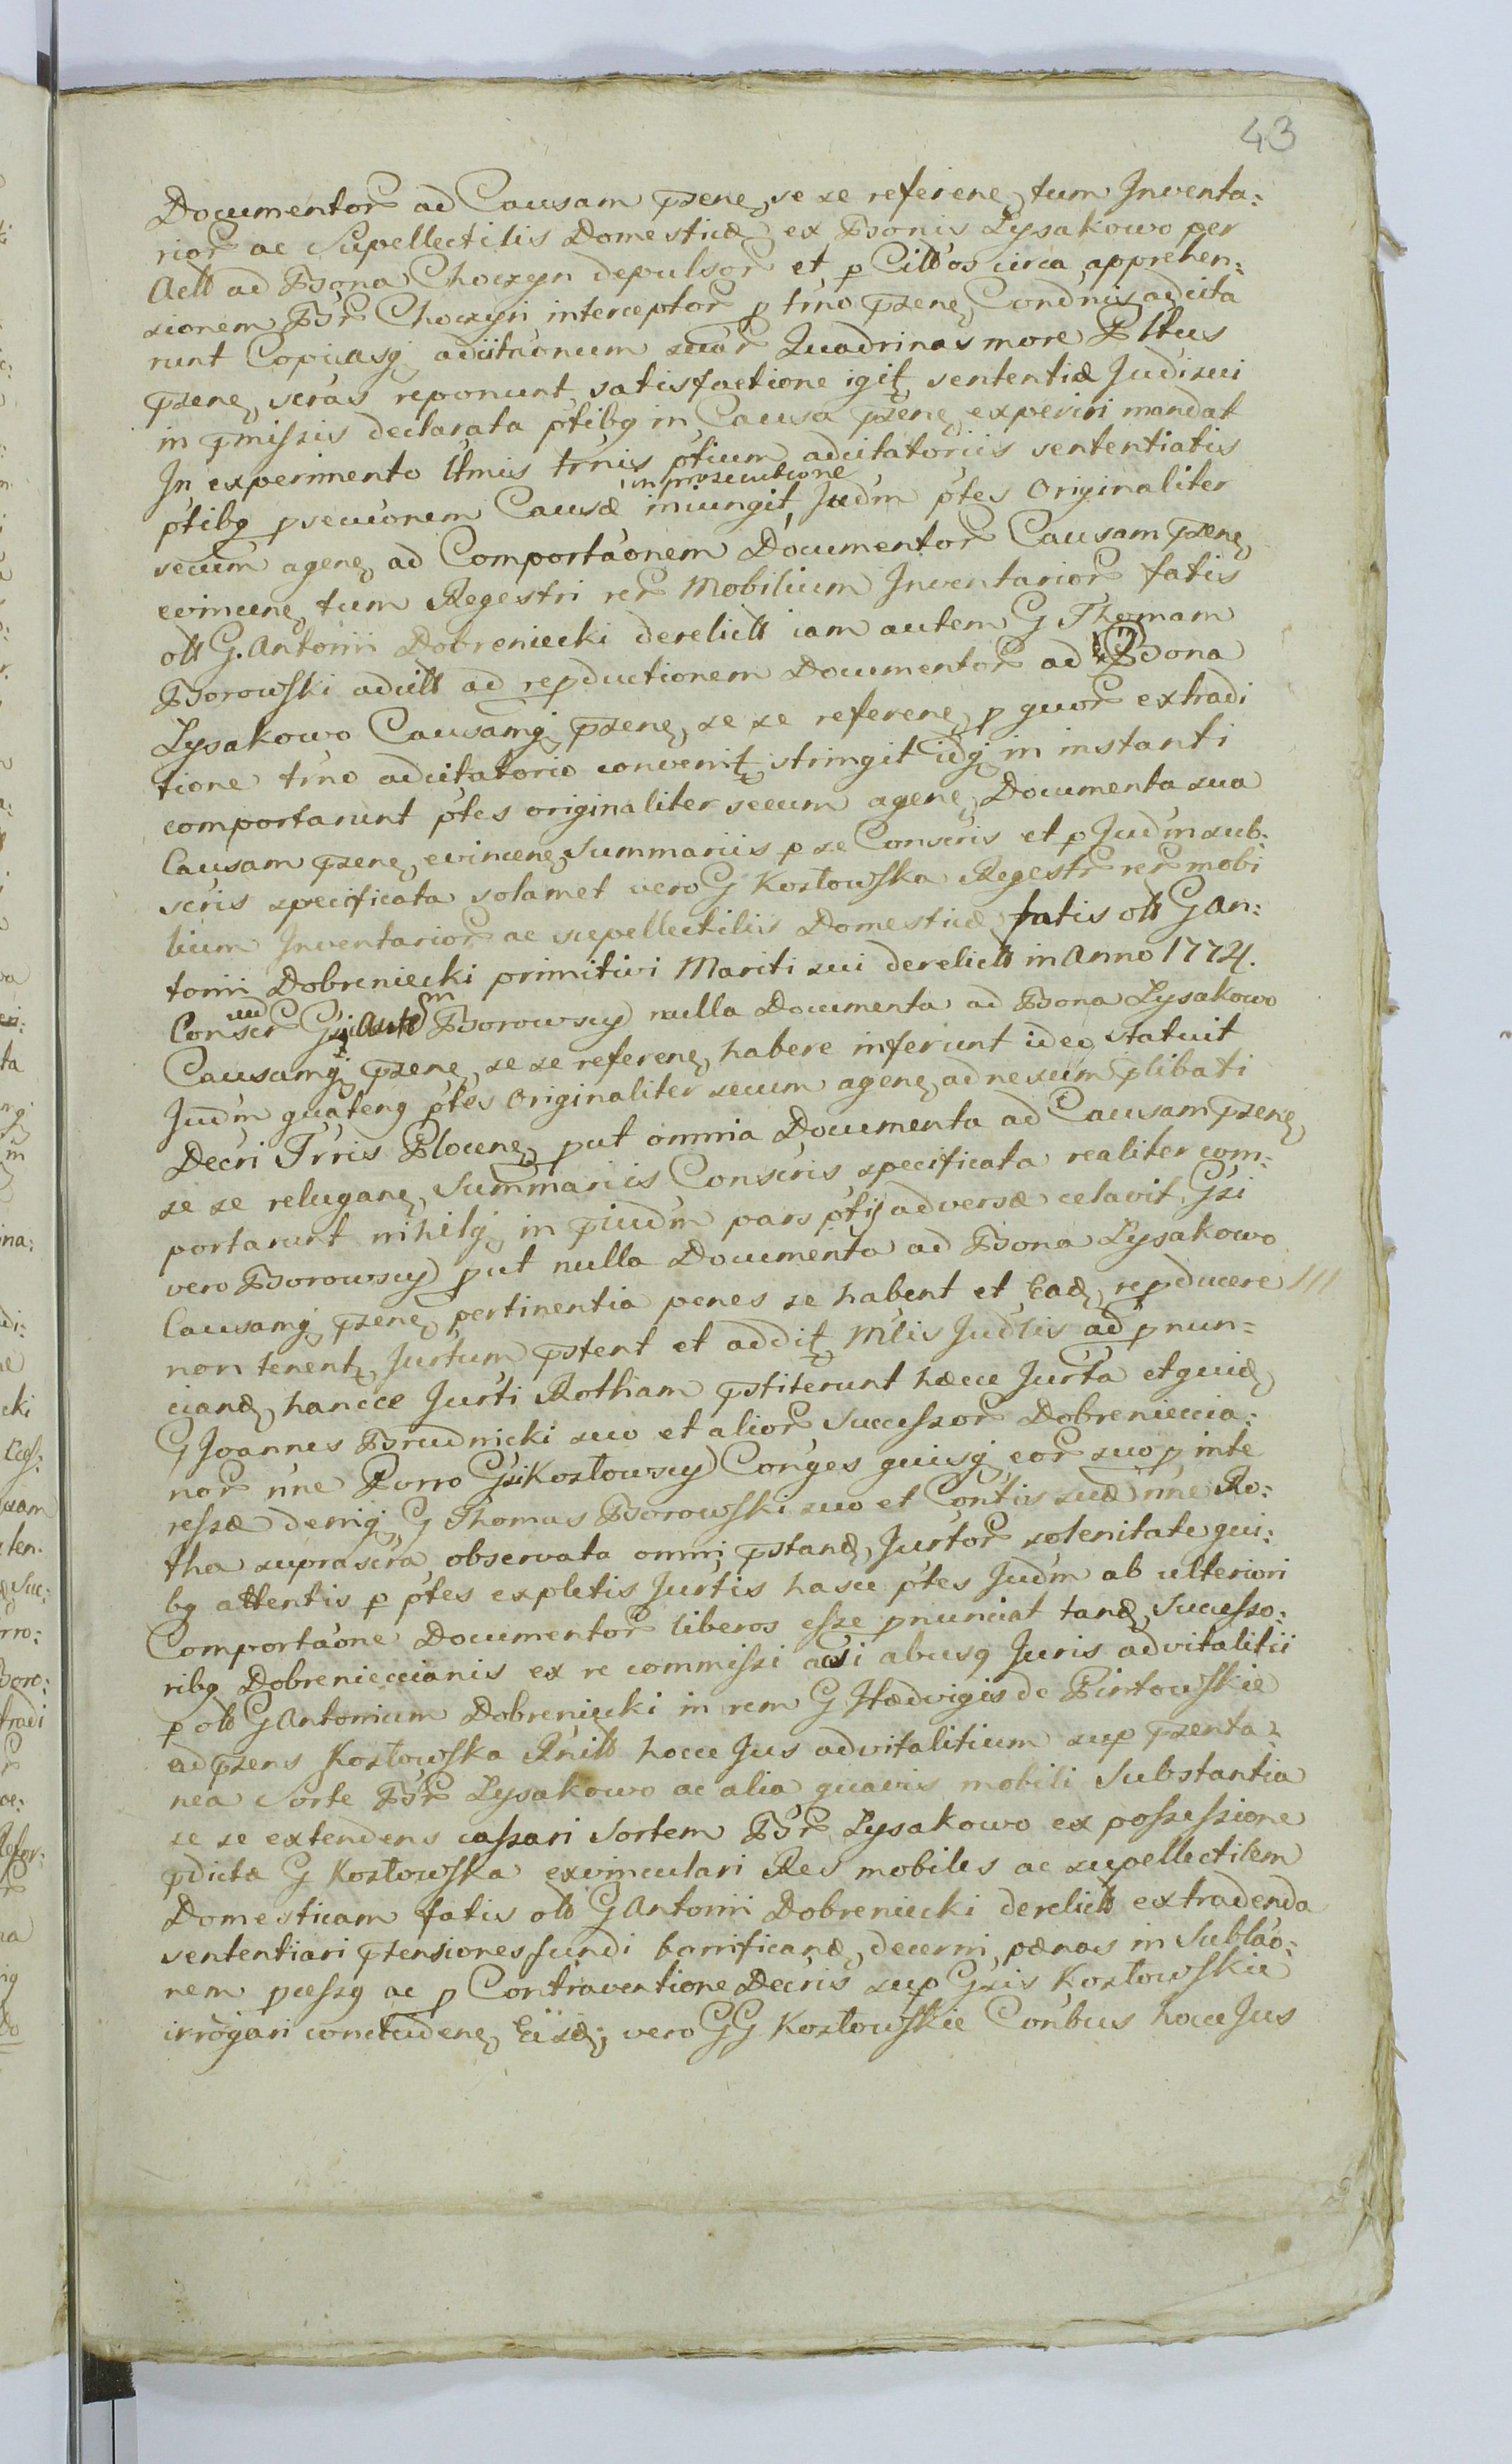 43
Documentor ad Causam pzene, se se referene, tum Inventa:
rior ac Supellectilis Domesticæ, ex Bonis Lysakowo per
Actt ad Bona Choczyn depulsor et p Citt'os circa apprehen:
sionem Br Choczyn interceptor p trno pzene, Condnis adcita
runt Copiasq adcitaonum suar Quadrinas more Pltus
pzene, scras reponunt, satisfactione igit, sententiæ Judi sui
in pmissis declarata ptibq in Causa pzene, experiri mandat
In experimento ltmis trnis ptium adcitatoriis sententiatis
in prosecutione
ptibq psecuonem Causæ iniungit, Judm ptes Originaliter
secum agene, ad Comportaonem Documentor Causam pzene,
evincene, tum Regestri rer Mobilium Inventarior fatis
ott G. Antonii Dobreniecki derelictt iam autem G Thomam
Borowski adcitt ad repductionem Documentor ad Bona
Lysakowo Causamq pzene, se se referene, p quor extradi
tione trno adcitatorio convenit, stringit idq in instanti
comportarunt ptes originaliter secum agene, Documenta sua
Causam pzene, evincene, Summariis p se Conscris et p Judm sub:
scris specificata solamet vero G Kozłowska Regestr rer mobi
lium Inventarior ac supellectilis Domesticæ, fatis ott G An:
tonii Dobreniecki primitivi Mariti sui derelictt in Anno 1774.
Conscr Gsi Borowscy nulla Documenta ad Bona Lysakowo
Causamq pzene, se se referene, habere inferunt ideo statuit
Judm quateng ptes Originaliter secum agene, ad nexum plibati
Decri Trris Plocene, put omnia Documenta ad Causam pzene,
se se relugane, Summariis Conscris specificata realiter com:
portarunt nihilq in pjudm pars ptis adversæ celavit, Gsi
vero Borowscy put nulla Documenta ad Bona Lysakowo
Causamq pzene, pertinentia penes se habent et Ead, repducere ///
non tenent, Jurtum pstent et addit, Mlis Judlis ad pnun=
ciand, hancce Jurti Rotham pstiterunt hæcce Jurta et quid,
G Joannes Brudnicki suo et alior Successor Dobrenieccia:
nor nne Porro Gsi Kozłowscy Conges quisq eor suo p inte
ressæ deniq G Thomas Borowski suo et Contis suæ nne Ro:
tha suprascra observata omni pstand, Jurtor solenitate qui:
bq attentis p ptes expletis Jurtis hasce ptes Judm ab ulteriori
Comportaone Documentor liberos esse pnunciat tand, Successo:
ribq Dobrenieccianis ex re commissi acsi abusq Juris advitalitii
p ott G Antonium Dobreniecki in rem G Hædvigis de Pintowskie
adpzens Kozłowska Rnitt hocce Jus advitalitium sup pzenta:
nea Sorte Br Lysakowo ac alia quavis mobili Substantia
se se extendens cassari Sortem Br Lysakowo ex possessione
pdictæ G Kozłowska exvinculari Res mobiles ac supellectilem
Domesticam fatis ott G Antonii Dobreniecki derelictt extradenda
sententiari ptensiones fundi bonificand, decerni, pænas in Sublao:
nem pcessq ac p Contraventione Decris sup Gsis Kozłowskie
irrogari concludene, Eisd, vero GG Kozłowskie Conbus hocce Jus